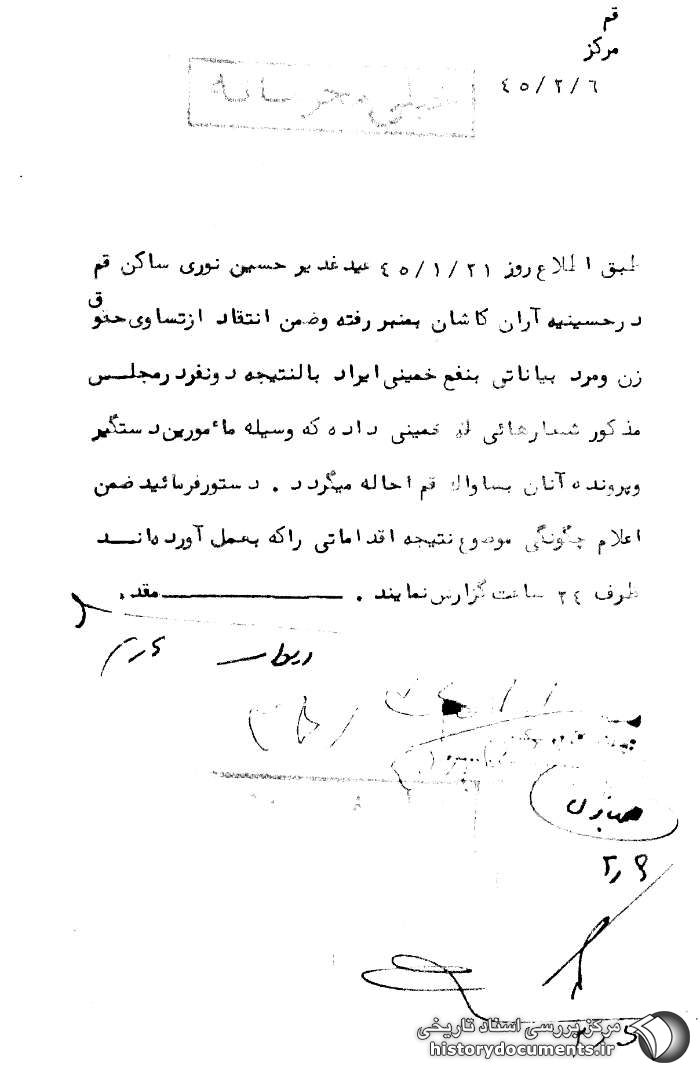 قم
مرکز
٤٥/٢/٦
خیلی محرمانه
طبق اطلاع روز ٤٥/١/٢١ عید غدیر حسین نوری ساکن قم
در حسینیه آران کاشان بمنبر رفته وضمن انتقاد از تساوی حقوق
زن ومرد بیاناتی بنفع خمینی ایراد بالنتیجه دونفر در مجلس
مذکور شعارهائی له خمینی داده که وسیله مأمورین دستگیر
وپرونده آنان بساواک قم احاله میگردد . دستور فرمائید ضمن
اعلام چگونگی موضوع نتیجه اقداماتی راکه بعمل آورده اند
ظرف ٢٤ ساعت گزارش نمایند . مقدم
٢٫٩
مرکز بررسی اسناد تاریخی
historydocuments.ir